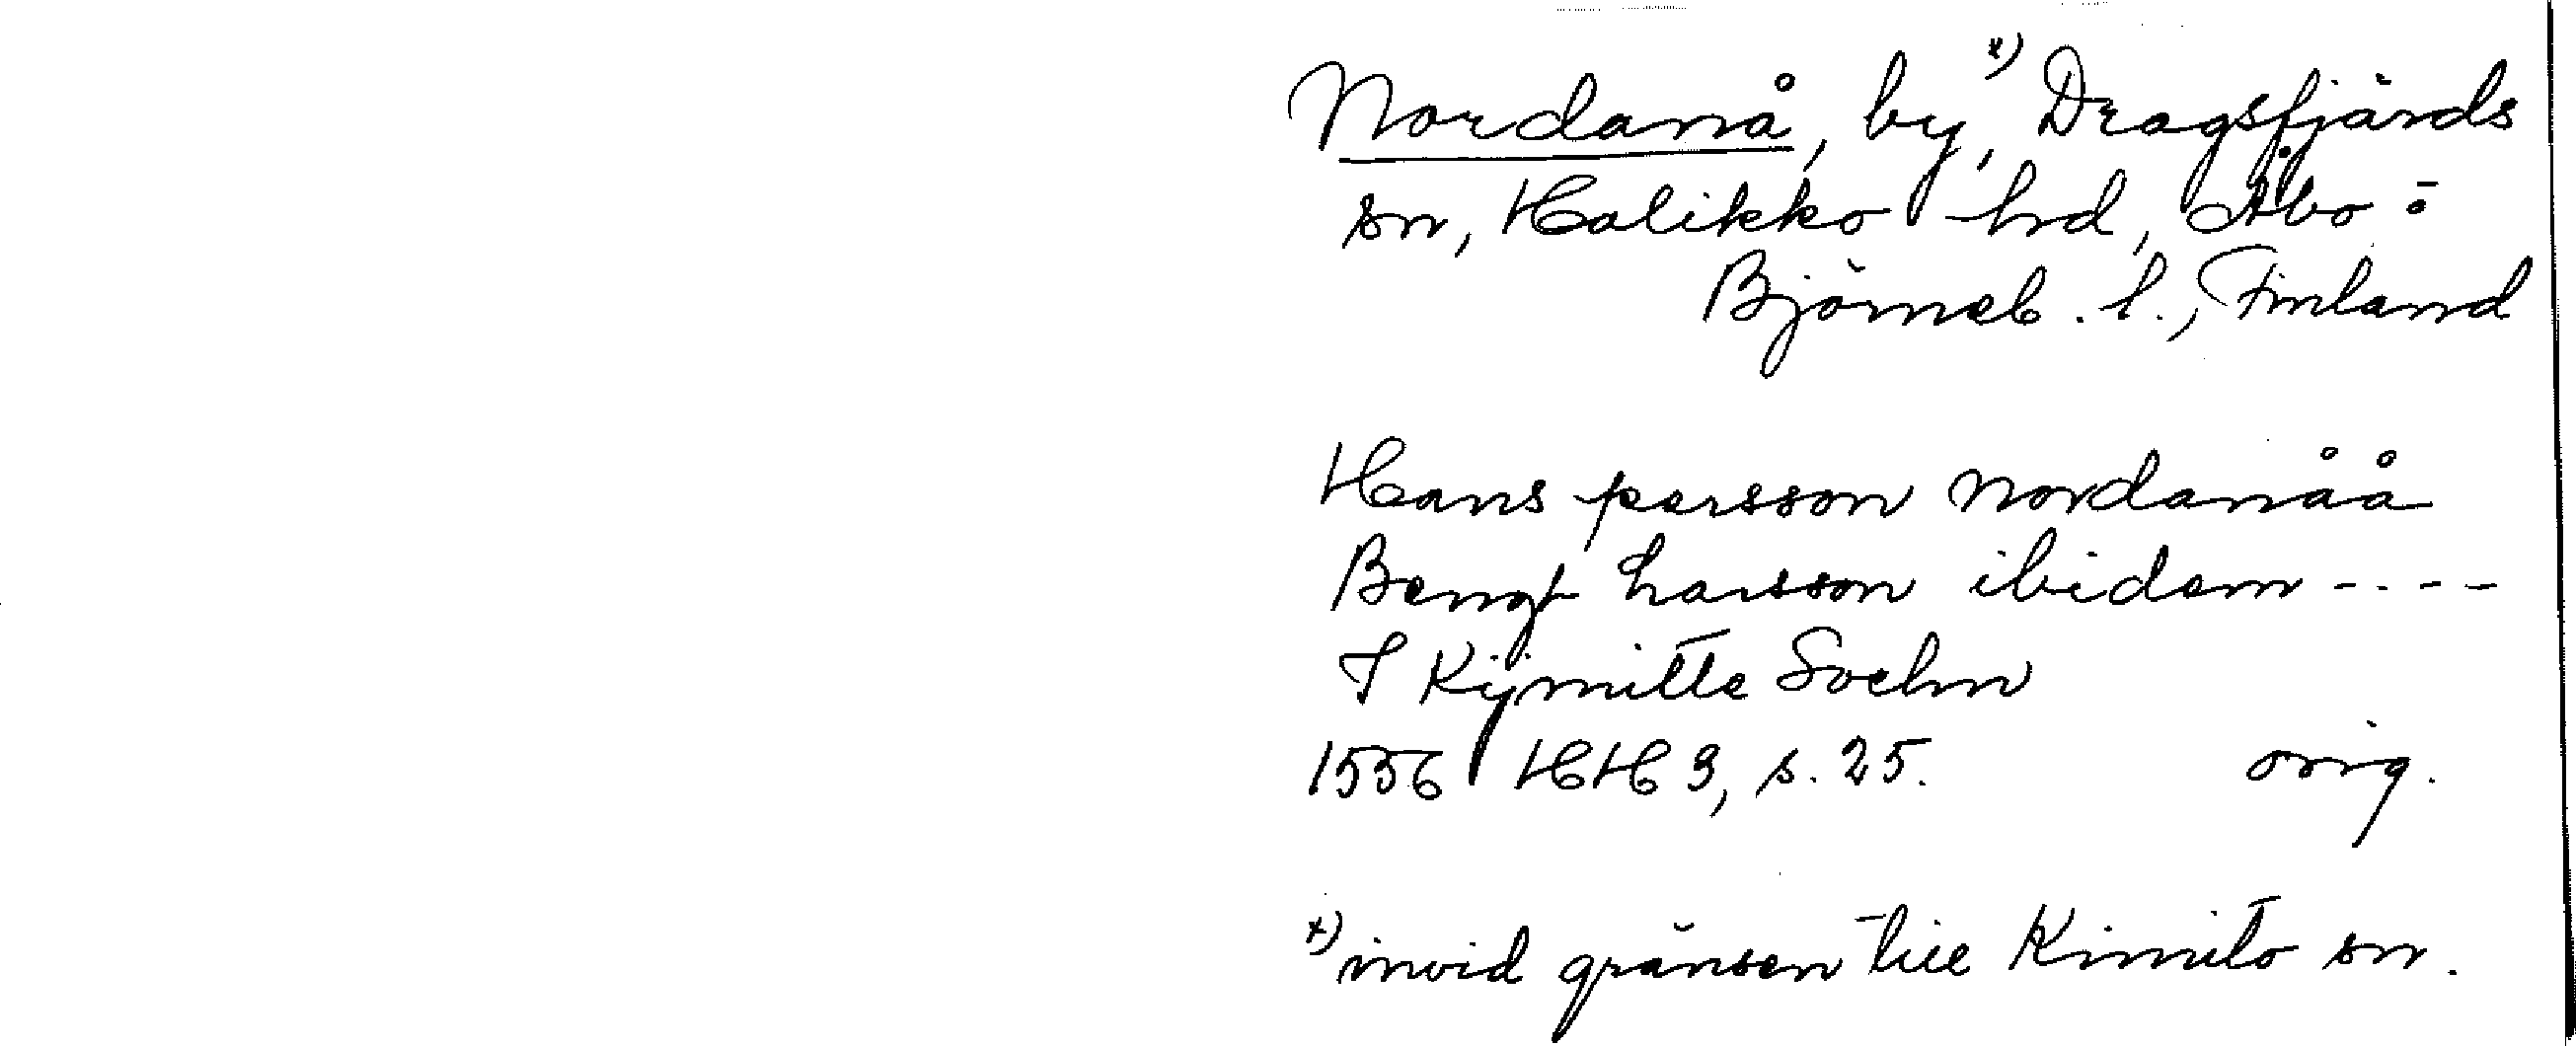 Nordanå, by, x) Dragsfjärds
sn, Halikko hd, Åbo-
Björneb. l., Finland
Hans persson Nordanåå
Bengt Larsson ibidem ----
I Kijmitte Sochn
1556 HH 3, s. 25. orig.
x) invid gränsen till Kimito sn.